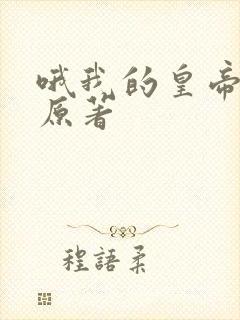 哦我的皇帝
原著
程語柔